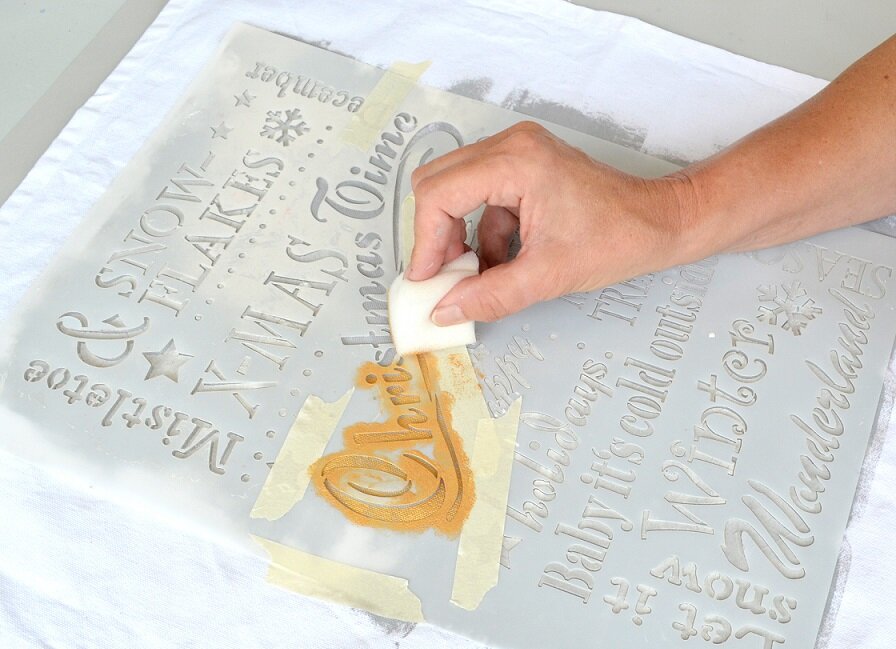 December
SNOW-
FLAKES
& 
XMAS
Mistletoe
Christmas Time
holidays.
TRE
Baby it's cold outside
Winter
Wonderland
Let it
snow